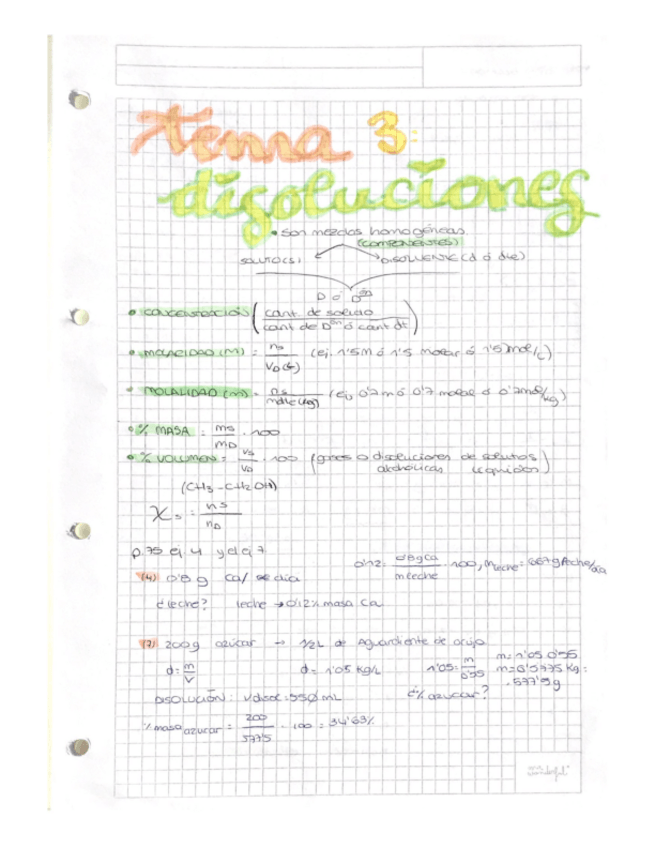 tema 3:
disoluciones
• Son mezclas homogéneas.
(COMPONENTES)
SOLUTO(S) DISOLVENTE (d ó dte)
D ó Dón
• CONCENTRACIÓN (cant. de soluto / cant de Dón ó cant dt)
• MOLARIDAD (M) = ns / VD(L) (ej. 1'5M ó 1'5 molar ó 1'5 mol/L)
• MOLALIDAD (m) = ns / mdte(kg) (ej. 0'7m ó 0'7 molal ó 0'7mol/kg)
• % MASA = ms / mD · 100
• % VOLUMEN = Vs / VD · 100 (gases o disoluciones de solutos
alcohólicas líquidos)
(CH3-CH2OH)
Xs = ns / nD
p.75 ej. 4 y el ej 7
0'12 = 0'8g Ca / mleche · 100, mleche = 667g leche/día
(4) 0'8 g Ca/ día
¿leche? leche → 0'12% masa Ca
(7) 200g azúcar → 1/2L de Aguardiente de orujo
d = m / V d = 1'05 kg/L 1'05 = m / 0'55 m = 1'05·0'55
m = 0'5775 kg =
577'5g
DISOLUCIÓN: Vdisol = 550 mL ¿% azúcar?
% masa azúcar = 200 / 577'5 · 100 = 34'63%